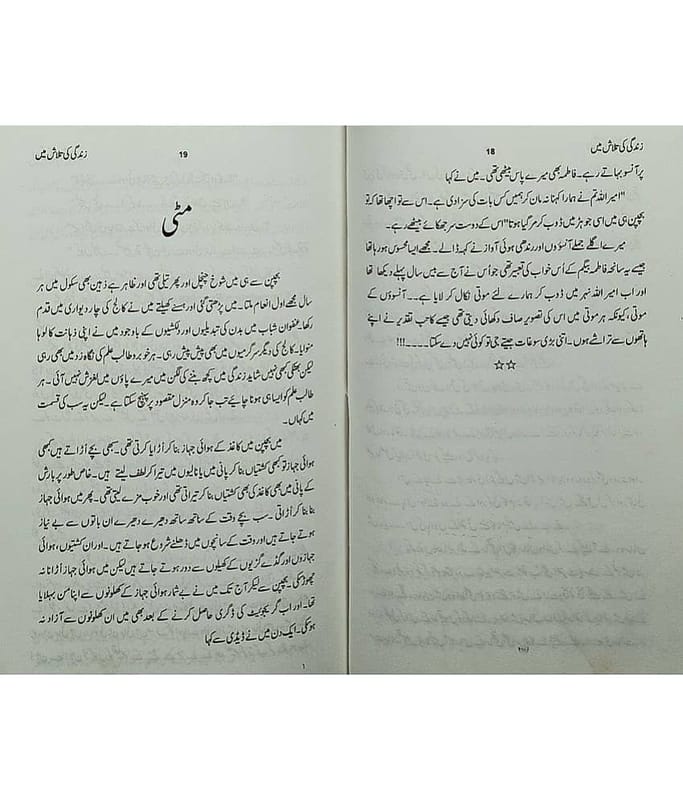 زندگی کی تلاش میں
18
پر آنسو بہاتے رہے۔ فاطمہ بھی میرے پاس بیٹھی تھی۔ میں نے کہا
"امیر اللہ تم نے ہمارا کہنا نہ مان کر ہمیں کس بات کی سزا دی ہے۔ اس سے تو اچھا تھا کہ تو
بچپن ہی میں اسی جوہڑ میں ڈوب کر مر گیا ہوتا" اس کے دوست سر جھکائے بیٹھے رہے۔
میرے اگلے جملے آنسوؤں اور رندھی ہوئی آواز نے کہہ ڈالے۔ مجھے ایسا محسوس ہو رہا تھا
جیسے یہ سانحہ فاطمہ بیگم کے اُس خواب کی تعبیر تھی جو اُس نے آج سے میں سال پہلے دیکھا تھا
اور اب امیر اللہ نہر میں ڈوب کر ہمارے لئے موتی نکال کر لایا ہے۔۔ آنسوؤں کے
موتی، کیونکہ ہر موتی میں اس کی تصویر صاف دکھائی دیتی تھی جیسے کاتب تقدیر نے اپنے
ہاتھوں سے تراشے ہوں۔ اتنی بڑی سوغات جیتے جی تو کوئی نہیں دے سکتا۔۔۔۔!!!
☆☆
زندگی کی تلاش میں
19
مٹی
بچپن سے ہی میں شوخ چنچل اور پھرتیلی تھی اور ظاہر ہے ذہین بھی سکول میں ہر
سال مجھے اول انعام ملتا۔ میں پڑھتی گئی اور ہنستے کھیلتے میں نے کالج کی چار دیواری میں قدم
رکھا۔ عنفوان شباب میں بدن کی تبدیلیوں اور دلکشیوں کے باوجود میں نے اپنی ذہانت کا لوہا
منوایا۔ کالج کی دیگر سرگرمیوں میں بھی پیش پیش رہی۔ ہر خوبرو طالب علم کی نگاہ زد میں بھی رہی
لیکن بھٹکی کبھی نہیں شاید زندگی میں کچھ بننے کی لگن میں میرے پاؤں میں لغزش نہیں آئی۔ ہر
طالب علم کو ایسا ہی ہونا چاہیے تب جا کر وہ منزل مقصود پر پہنچ سکتا ہے۔ لیکن یہ سب کی قسمت
میں کہاں۔
میں بچپن میں کاغذ کے ہوائی جہاز بنا کر اُڑایا کرتی تھی۔ سبھی بچے اُڑاتے ہیں کبھی
ہوائی جہاز تو کبھی کشتیاں بنا کر پانی میں یا نالیوں میں تیرا کر لطف لیتے ہیں۔ خاص طور پر بارش
کے پانی میں بھی کاغذ کی بھی کشتیاں بنا کر تیراتی تھی اور خوب مزے لیتی تھی۔ پھر میں ہوائی جہاز
بنا بنا کر اُڑاتی۔ سب بچے وقت کے ساتھ ساتھ دھیرے دھیرے ان باتوں سے بے نیاز
ہوتے جاتے ہیں اور وقت کے سانچوں میں ڈھلنے شروع ہو جاتے ہیں۔ اور ان کشتیوں، ہوائی
جہازوں اور گڈے گڑیوں کے کھیلوں سے دور ہوتے جاتے ہیں لیکن میں ہوائی جہاز اڑانا نہ
چھوڑ سکی۔ بچپن سے لیکر آج تک میں نے بے شمار ہوائی جہاز کے کھلونوں سے اپنا من بہلایا
تھا۔ اور اب گریجویٹ کی ڈگری حاصل کرنے کے بعد بھی میں ان کھلونوں سے آزاد نہ
ہو سکی۔ ایک دن میں نے ڈیڈی سے کہا